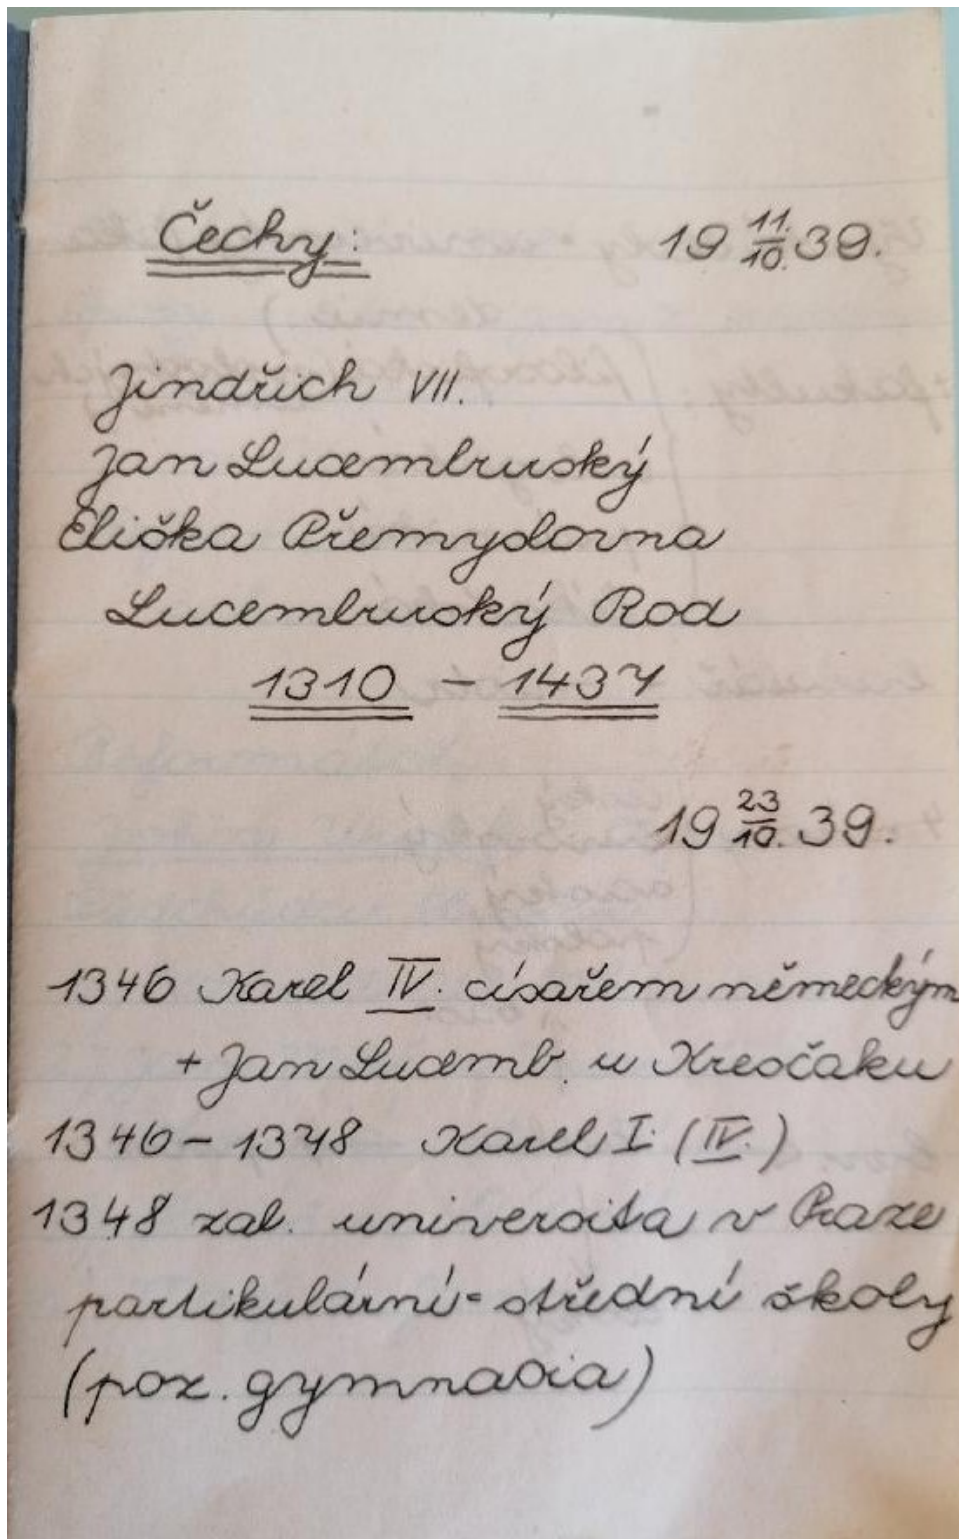 Čechy: 19 11./10. 39.
Jindřich VII.
Jan Lucemburský
Eliška Přemyslovna
Lucemburský Rod
1310 - 1437
19 23/10. 39.
1346 Karel IV. císařem německým
+ Jan Lucemb. u Kresčaku
1346 - 1378 Karel I. (IV.)
1348 zal. universita v Praze
partikulární = střední školy
(poz. gymnasia)